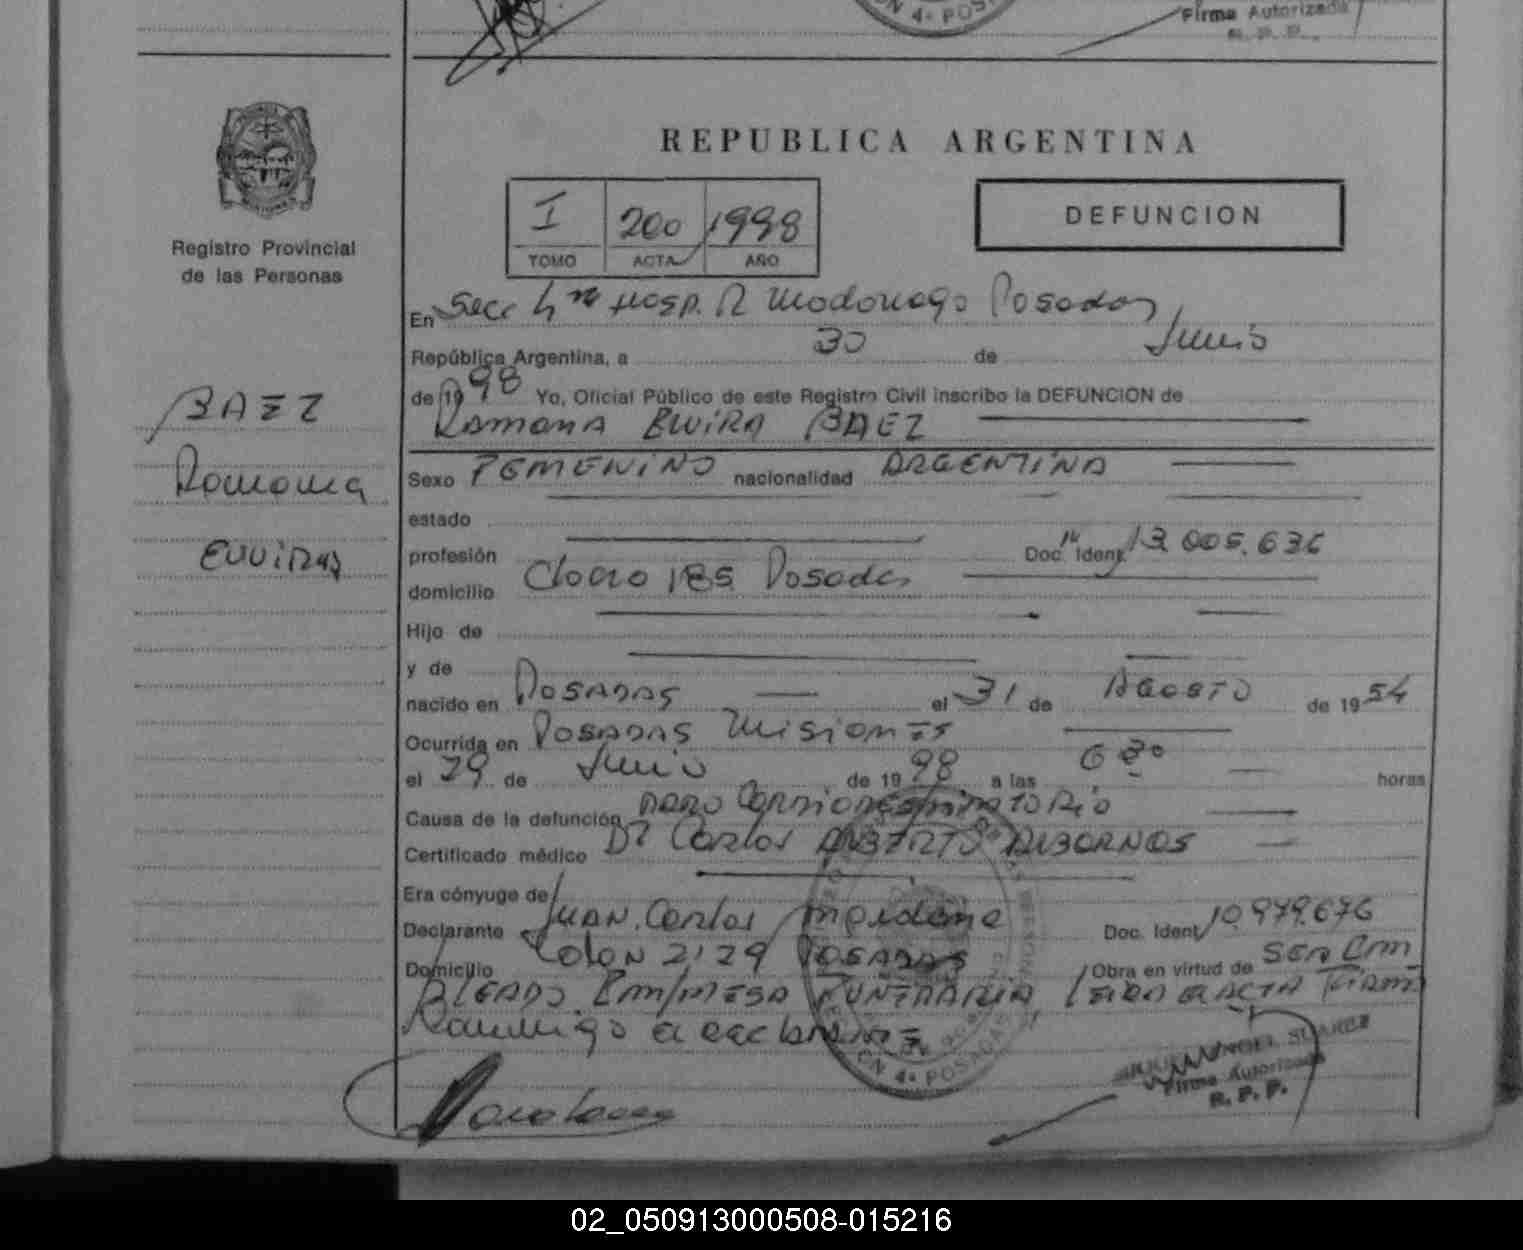 CN 4ª POS
Firma Autorizada
R. P. P.
REPUBLICA ARGENTINA
I 200 1998
TOMO ACTA AÑO
DEFUNCION
Registro Provincial
de las Personas
BAEZ
Ramona
ELVIRA
En Secc 4ta Hosp. R Madariaga Posadas
República Argentina, a 30 de Junio
de 1998 Yo, Oficial Público de este Registro Civil inscribo la DEFUNCION de
Ramona ELVIRA BAEZ
Sexo FEMENINO nacionalidad ARGENTINA
estado
profesión Doc. Ident. 13.005.636
domicilio Chaco 185 Posadas
Hijo de
y de
nacido en POSADAS el 31 de AGOSTO de 1954
Ocurrida en POSADAS MISIONES
el 29 de Junio de 1998 a las 6 30 horas
Causa de la defunción PARO Cardiorespiratorio
Certificado médico Dr Carlos ALBERTO ALBORNOS
Era cónyuge de
Declarante JUAN Carlos Doc. Ident. 10.979.676
Domicilio COLON 2129 POSADAS Obra en virtud de SER Em
PLEADO EMPRESA FUNERARIA LEIDA EL ACTA FIRMA
Conmigo el declarante
CN 4ª POSADAS
MIGUEL ANGEL SUAREZ
Firma Autorizada
R. P. P.
02_050913000508-015216